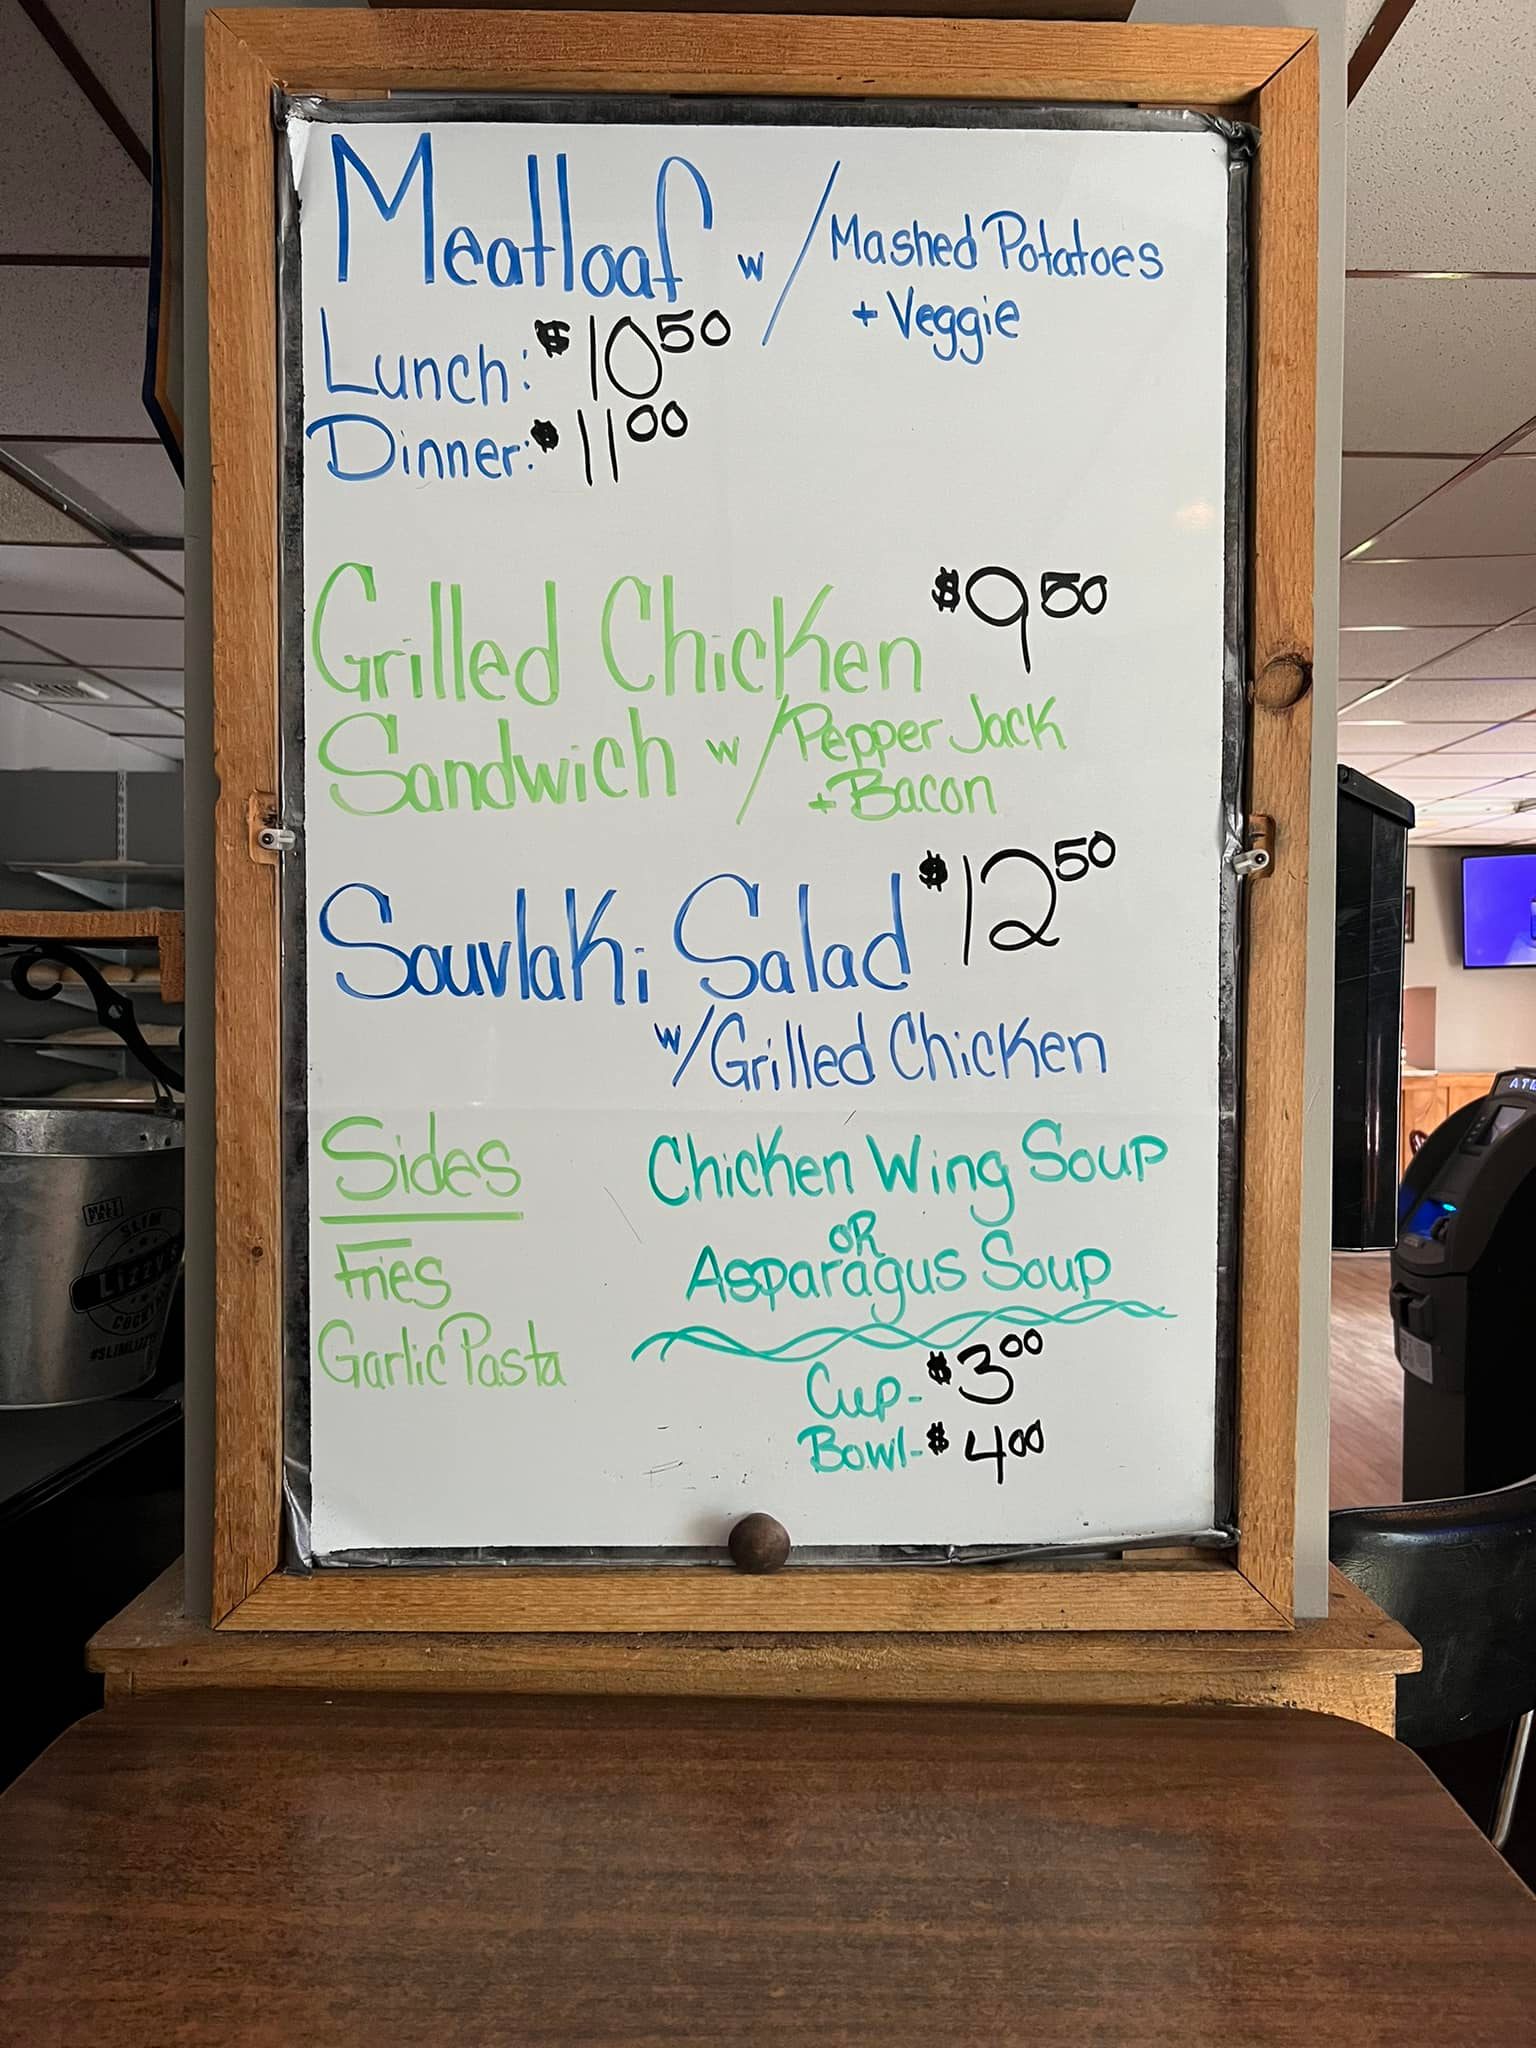 Meatloaf w/ Mashed Potatoes
+ Veggie
Lunch: $10.50
Dinner: $11.00
Grilled Chicken $9.50
Sandwich w/ Pepper Jack
+ Bacon
Souvlaki Salad $12.50
w/ Grilled Chicken
Sides
Fries
Garlic Pasta
Chicken Wing Soup
OR
Asparagus Soup
Cup - $3.00
Bowl - $4.00
MALT
FREE
SLIM
LIZZY'S
ATM